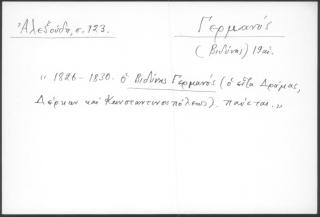 Ἀλεξούδα, σ. 123.
Γερμανός
(Βιδύνης) 19 αἰ.
" 1826-1830. ὁ Βιδύνης Γερμανός (ὁ εἶτα Δράμας,
Δέρκων καὶ Κωνσταντινουπόλεως). παύεται."